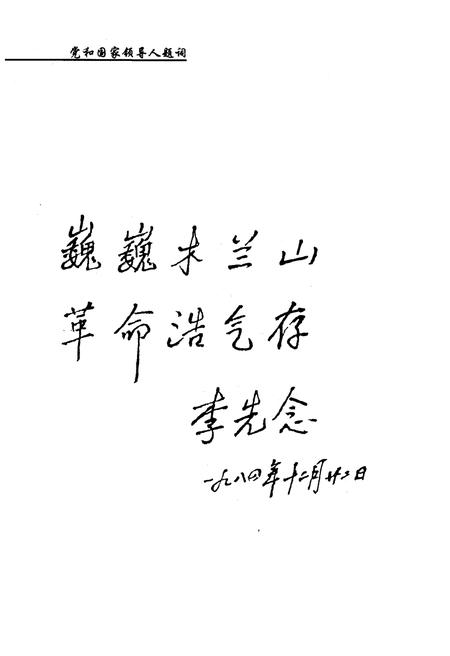 党和国家领导人题词
巍巍木兰山
革命浩气存
李先念
一九八四年十二月廿二日